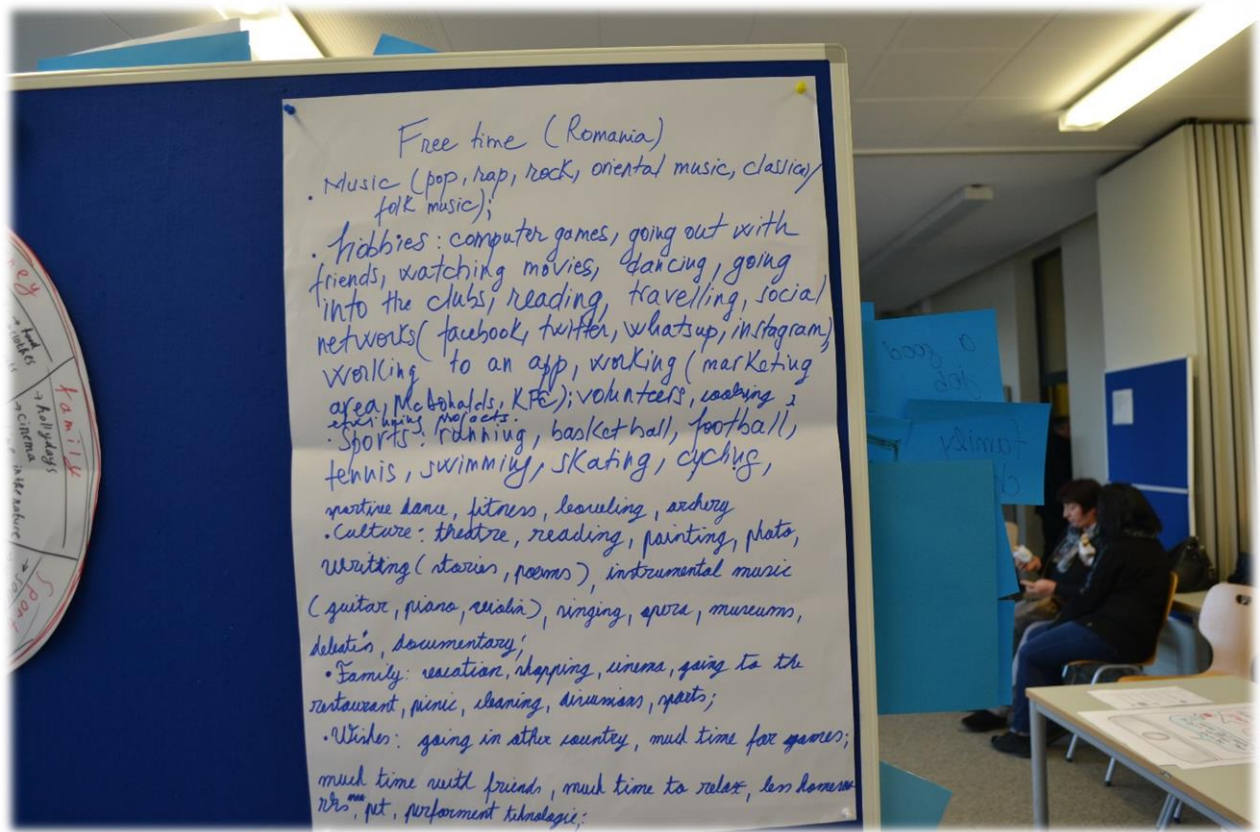 Free time (Romania)
. Music (pop, rap, rock, oriental music, classical/
folk music);
. hobbies: computer games, going out with
friends, watching movies, dancing, going
into the clubs, reading, travelling, social
networks( facebook, twitter, whatsup, instagram)
working to an app, working (marketing
area, McDonalds, KFC); volunteers, cooking,
projects.
. Sports: running, basketball, football,
tennis, swimming, skating, cycling,
sportive dance, fitness, bowling, archery
. Culture: theatre, reading, painting, photo,
writing (stories, poems), instrumental music
(guitar, piano, violin), singing, opera, museums,
documentary;
. Family: vacation, shopping, cinema, going to the
restaurant, picnic, cleaning, discussions, sports;
. Wishes: going in other country, much time for games;
much time with friends, much time to relax, less
pet, performent tehnologie;
food
clothes
family
→ hollydays
→ cinema
in the nature
Sport
a good
job
family